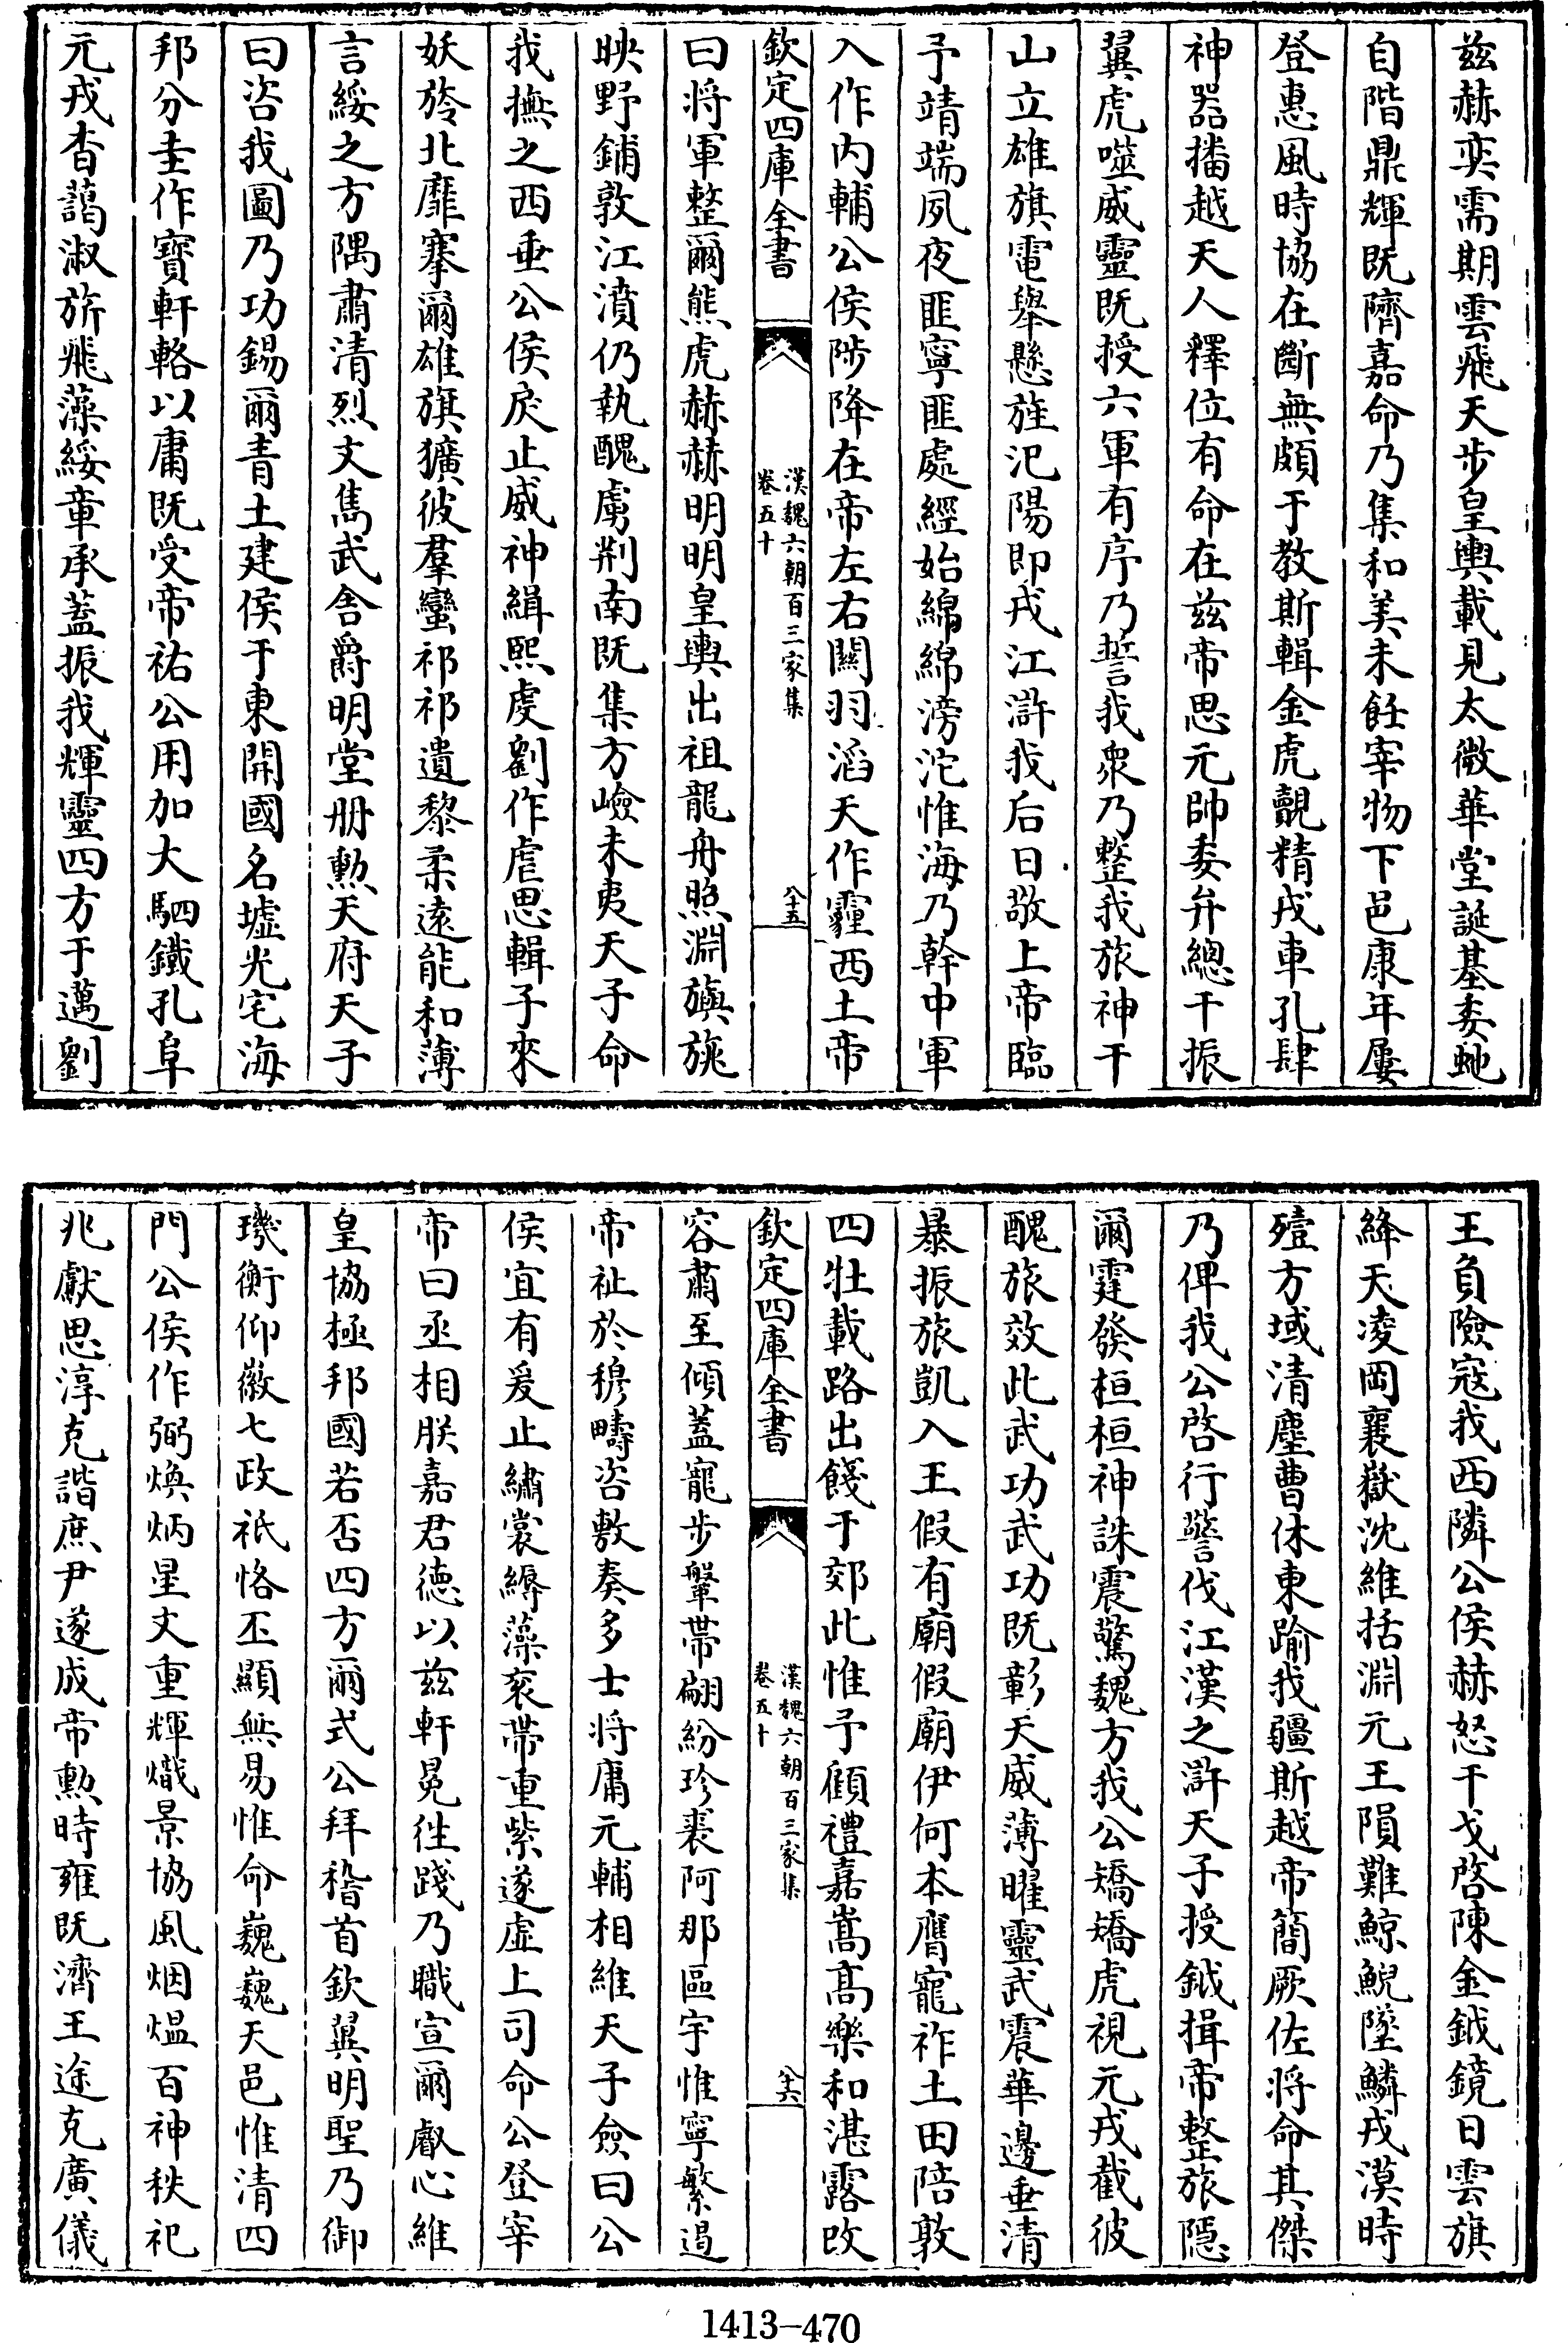 茲赫奕需期雲飛天步皇輿載見太微華堂誕基委虵
自階鼎輝既隮嘉命乃集和美未飪宰物下邑康年屢
登惠風時協在斷無頗于教斯輯金虎覿精戎車孔肆
神器播越天人釋位有命在茲帝思元帥委弁總干振
翼虎噬威靈既授六軍有序乃誓我衆乃整我旅神干
山立雄旗電舉懸旌汜陽即戎江滸我后日敬上帝臨
予靖端夙夜匪寧匪處經始綿綿滂沱惟海乃幹中軍
入作内輔公侯陟降在帝左右關羽滔天作霾西土帝
欽定四庫全書
漢魏六朝百三家集
卷五十
八十五
曰将軍整爾熊虎赫赫明明皇輿出祖龍舟照淵旟旐
映野鋪敦江濆仍執醜虜荆南既集方嶮未夷天子命
我撫之西垂公侯戾止威神緝熙虔劉作虐思輯子來
妖旍北靡搴爾雄旗獷彼羣蠻祁祁遺黎柔遠能和薄
言綏之方隅肅清烈文雋武舍爵明堂册勲天府天子
曰咨我圖乃功錫爾青土建侯于東開國名墟光宅海
邦分圭作寶軒輅以庸既受帝祐公用加大駟鐵孔阜
元戎杳藹淑旂飛藻綏章承蓋振我輝靈四方于邁劉
王負險寇我西隣公侯赫怒干戈啓陳金鉞鏡日雲旗
絳天凌岡襄嶽沈維括淵元王隕難鯨鯢墜鱗戎漠時
殪方域清塵曹休東踰我疆斯越帝簡厥佐将命其傑
乃俾我公啓行警伐江漢之滸天子授鉞揖帝整旅隱
爾霆發桓桓神誅震驚魏方我公矯矯虎視元戎截彼
醜旅效此武功武功既彰天威薄曜靈武震華邊垂清
暴振旅凱入王假有廟假廟伊何本膺寵祚土田陪敦
四牡載路出餞于郊此惟予顧禮嘉嵩高樂和湛露改
欽定四庫全書
漢魏六朝百三家集
卷五十
八十六
容肅至傾蓋寵步鞶帶翩紛珍裘阿那區宇惟寧繁遏
帝祉於穆疇咨敷奏多士将庸元輔相維天子僉曰公
侯宜有爰止繡裳縟藻衮帶重紫遂虚上司命公登宰
帝曰丞相朕嘉君德以茲軒冕徃踐乃職宣爾猷心維
皇協極邦國若否四方爾式公拜稽首欽翼明聖乃御
璣衡仰徽七政祇恪丕顯無易惟命巍巍天邑惟清四
門公侯作弼煥炳星文重輝熾景協風烟煴百神秩祀
兆獻思淳克諧庶尹遂成帝勲時雍既濟王途克廣儀
1413-470